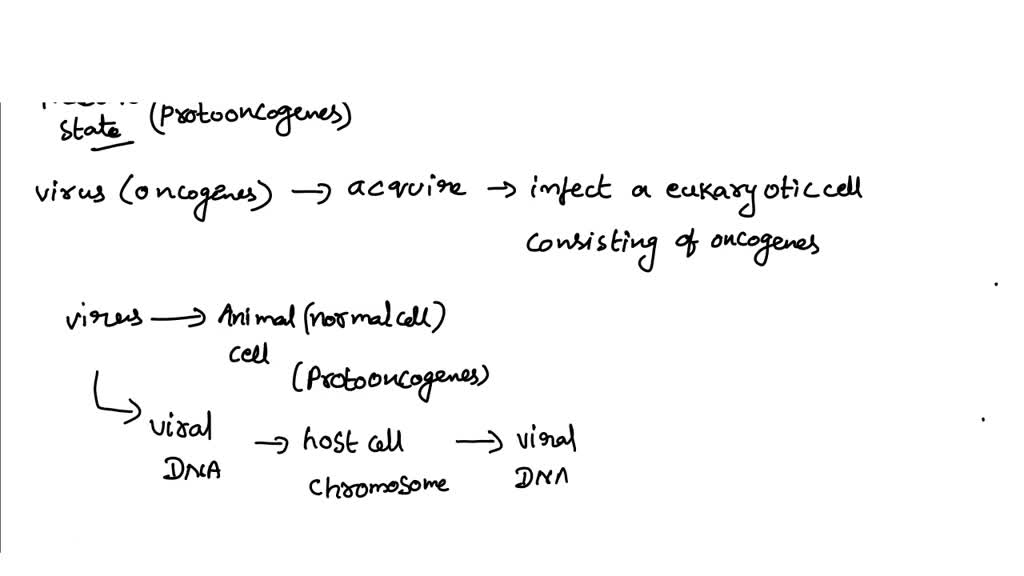 state (protooncogenes)
virus (oncogenes) → acquire → infect a eukaryotic cell
consisting of oncogenes
virus → Animal (normal cell)
cell
(Protooncogenes)
viral → host cell → viral
DNA chromosome DNA